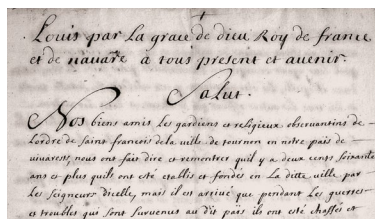 Louis par La grace de dieu Roy de france
et de navare à tous present et avenir.
Salut.
Nos biens amis les gardiens et religieux observantins de
Lordre de saint francois de la ville de tournon en nôtre païs de
vivarests, nous ont fait dire et remontrer quil y a deux cents soixante
ans et plus quils ont esté etablis et fondés en La ditte ville par
Les seigneurs dicelle, mais il est arrivé que pendant les guerres
et troubles qui sont survenus au dit païs ils ont esté chassés et